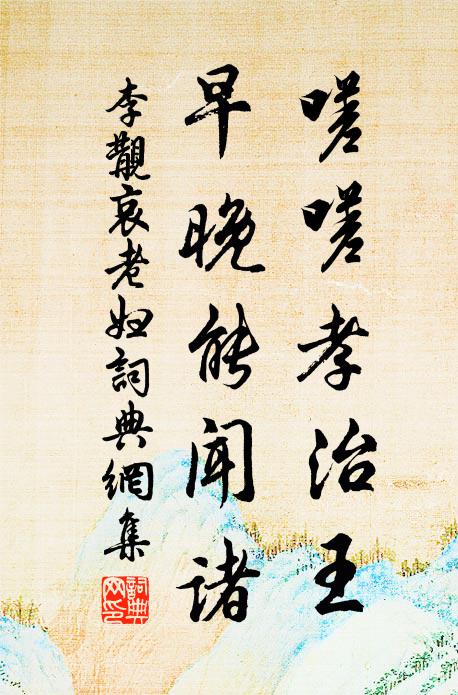 嗟嗟孝治王
早晚能聞諸
李覯哀老妇詞典網集
詞典网印